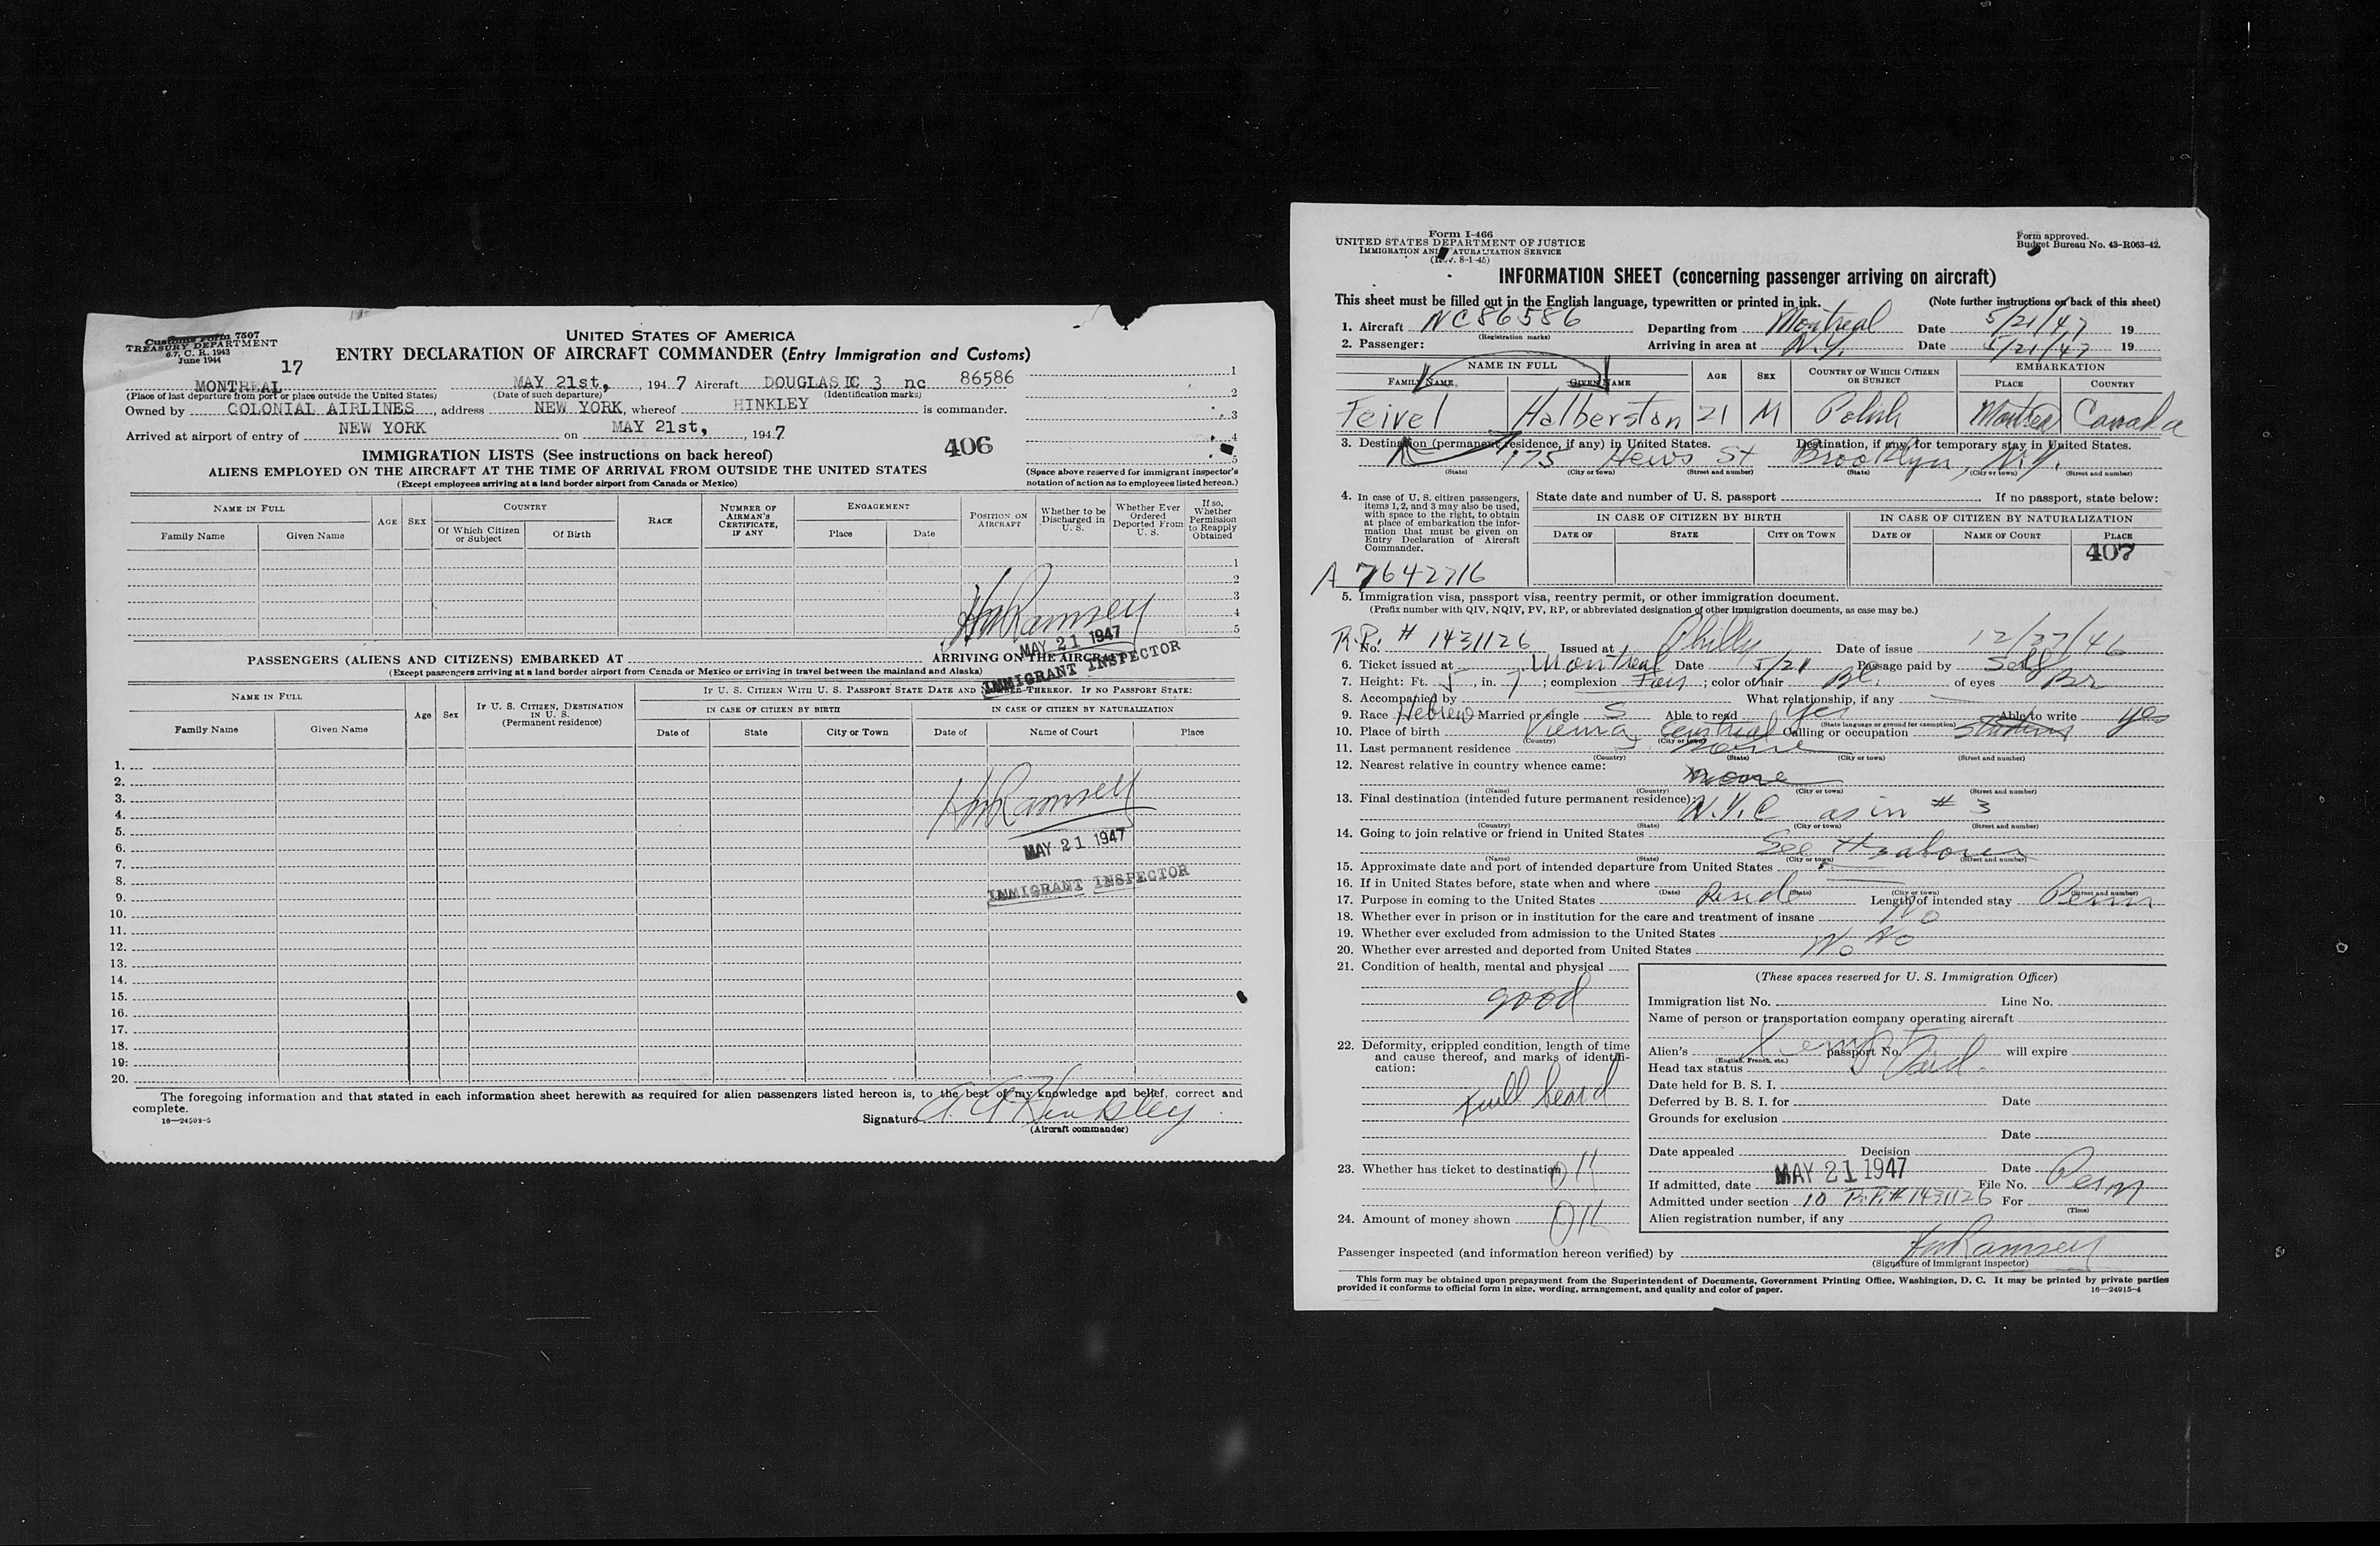 Customs Form 7507
TREASURY DEPARTMENT
6.7, C. R. 1943
June 1944
17
UNITED STATES OF AMERICA
ENTRY DECLARATION OF AIRCRAFT COMMANDER (Entry Immigration and Customs)
MONTREAL MAY 21st, , 194 7 Aircraft DOUGLAS DC 3 nc 86586 1
(Place of last departure from port or place outside the United States) (Date of such departure) (Identification marks) 2
Owned by COLONIAL AIRLINES , address NEW YORK, whereof HINKLEY is commander. 3
Arrived at airport of entry of NEW YORK on MAY 21st, , 194 7 4
406 5
IMMIGRATION LISTS (See instructions on back hereof)
ALIENS EMPLOYED ON THE AIRCRAFT AT THE TIME OF ARRIVAL FROM OUTSIDE THE UNITED STATES
(Except employees arriving at a land border airport from Canada or Mexico)
(Space above reserved for immigrant inspector's notation of action as to employees listed hereon.)
NAME IN FULL
Family Name Given Name
AGE SEX
COUNTRY
Of Which Citizen or Subject Of Birth
RACE
NUMBER OF AIRMAN'S CERTIFICATE, IF ANY
ENGAGEMENT
Place Date
POSITION ON AIRCRAFT
Whether to be Discharged in U. S.
Whether Ever Ordered Deported From U. S.
If so, Whether Permission to Reapply Obtained
1
2
3
4
5
HmRamsey
MAY 21 1947
IMMIGRANT INSPECTOR
PASSENGERS (ALIENS AND CITIZENS) EMBARKED AT ARRIVING ON THE AIRCRAFT
(Except passengers arriving at a land border airport from Canada or Mexico or arriving in travel between the mainland and Alaska)
NAME IN FULL
Family Name Given Name
Age Sex
IF U. S. CITIZEN, DESTINATION IN U. S.
(Permanent residence)
IF U. S. CITIZEN WITH U. S. PASSPORT STATE DATE AND NUMBER THEREOF. IF NO PASSPORT STATE:
IN CASE OF CITIZEN BY BIRTH IN CASE OF CITIZEN BY NATURALIZATION
Date of State City or Town Date of Name of Court Place
1.
2.
3.
4.
5.
6.
7.
8.
9.
10.
11.
12.
13.
14.
15.
16.
17.
18.
19.
20.
HmRamsey
MAY 21 1947
IMMIGRANT INSPECTOR
The foregoing information and that stated in each information sheet herewith as required for alien passengers listed hereon is, to the best of my knowledge and belief, correct and
complete.
16—24503-5
Signature Hinkley
(Aircraft commander)
Form I-466
UNITED STATES DEPARTMENT OF JUSTICE
IMMIGRATION AND NATURALIZATION SERVICE
(Rev. 8-1-45)
Form approved.
Budget Bureau No. 43-R063-42.
INFORMATION SHEET (concerning passenger arriving on aircraft)
This sheet must be filled out in the English language, typewritten or printed in ink. (Note further instructions on back of this sheet)
1. Aircraft NC86586 Departing from Montreal Date 5/21/47 19
(Registration marks)
2. Passenger: Arriving in area at N.Y. Date 5/21/47 19
NAME IN FULL
FAMILY NAME GIVEN NAME
AGE SEX
COUNTRY OF WHICH CITIZEN OR SUBJECT
EMBARKATION
PLACE COUNTRY
Feivel Halberston 21 M Polish Montreal Canada
3. Destination (permanent residence, if any) in United States. Destination, if any, for temporary stay in United States.
175 Hews St Brooklyn, N.Y.
(State) (City or town) (Street and number) (State) (City or town) (Street and number)
4. In case of U. S. citizen passengers, items 1, 2, and 3 may also be used, with space to the right, to obtain at place of embarkation the information that must be given on Entry Declaration of Aircraft Commander.
State date and number of U. S. passport If no passport, state below:
IN CASE OF CITIZEN BY BIRTH IN CASE OF CITIZEN BY NATURALIZATION
DATE OF STATE CITY OR TOWN DATE OF NAME OF COURT PLACE
407
A 7642716
5. Immigration visa, passport visa, reentry permit, or other immigration document.
(Prefix number with QIV, NQIV, PV, RP, or abbreviated designation of other immigration documents, as case may be.)
R.P. # No. 1431126 Issued at Philly Date of issue 12/27/46
6. Ticket issued at Montreal Date 5/21 Passage paid by Self
7. Height: Ft. 5 , in. 7 ; complexion Fair ; color of hair Bl. of eyes Br
8. Accompanied by What relationship, if any
9. Race Hebrew Married or single S Able to read Yes Able to write yes
(State language or ground for exemption)
10. Place of birth Vienna, Calling or occupation Student
(Country) (City or town)
11. Last permanent residence none
(Country) (State) (City or town) (Street and number)
12. Nearest relative in country whence came: none
(Name) (Country) (City or town) (Street and number)
13. Final destination (intended future permanent residence): N.Y.C as in # 3
(Country) (State) (City or town) (Street and number)
14. Going to join relative or friend in United States See above
(Name) (State) (City or town) (Street and number)
15. Approximate date and port of intended departure from United States
16. If in United States before, state when and where
(Date) (State) (City or town) (Street and number)
17. Purpose in coming to the United States Reside Length of intended stay Perm
18. Whether ever in prison or in institution for the care and treatment of insane No
19. Whether ever excluded from admission to the United States No
20. Whether ever arrested and deported from United States No
21. Condition of health, mental and physical
good
22. Deformity, crippled condition, length of time and cause thereof, and marks of identification:
full beard
23. Whether has ticket to destination OK
24. Amount of money shown OK
(These spaces reserved for U. S. Immigration Officer)
Immigration list No. Line No.
Name of person or transportation company operating aircraft
Alien's passport No. will expire
(English, French, etc.)
Head tax status Paid.
Date held for B. S. I.
Deferred by B. S. I. for Date
Grounds for exclusion
Date
Date appealed Decision
Date
If admitted, date MAY 21 1947 File No. Perm
Admitted under section 10 R.P.# 1431126 For
(Time)
Alien registration number, if any
Passenger inspected (and information hereon verified) by HmRamsey
(Signature of immigrant inspector)
This form may be obtained upon prepayment from the Superintendent of Documents, Government Printing Office, Washington, D. C. It may be printed by private parties
provided it conforms to official form in size, wording, arrangement, and quality and color of paper. 16—24915-4